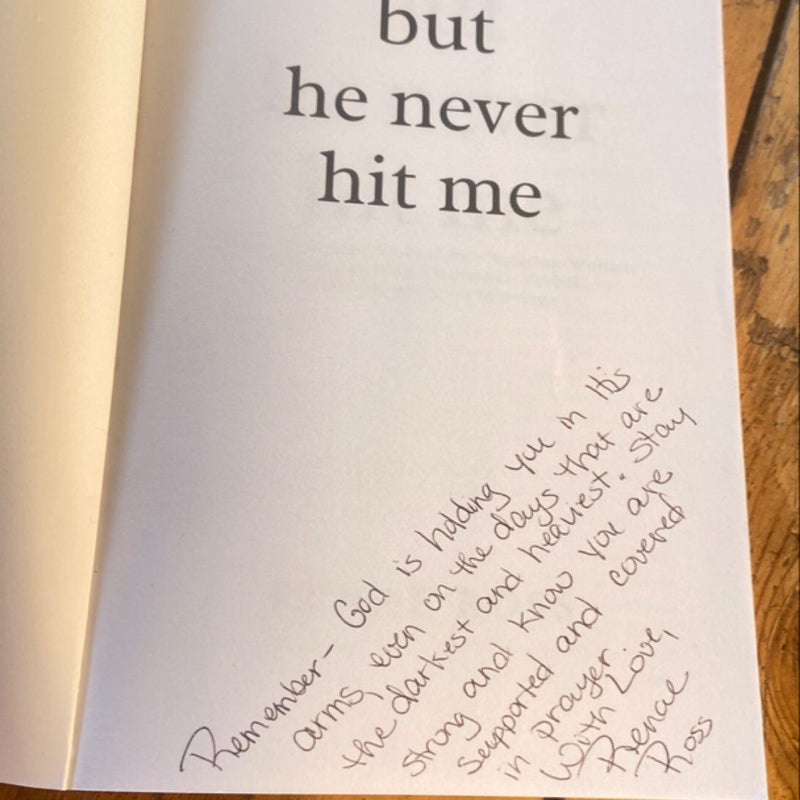 but
he never
hit me
Remember- God is holding you in His
arms, even on the days that are
the darkest and heaviest. Stay
strong and know you are
supported and covered
in prayer.
With Love,
Renae
Ross